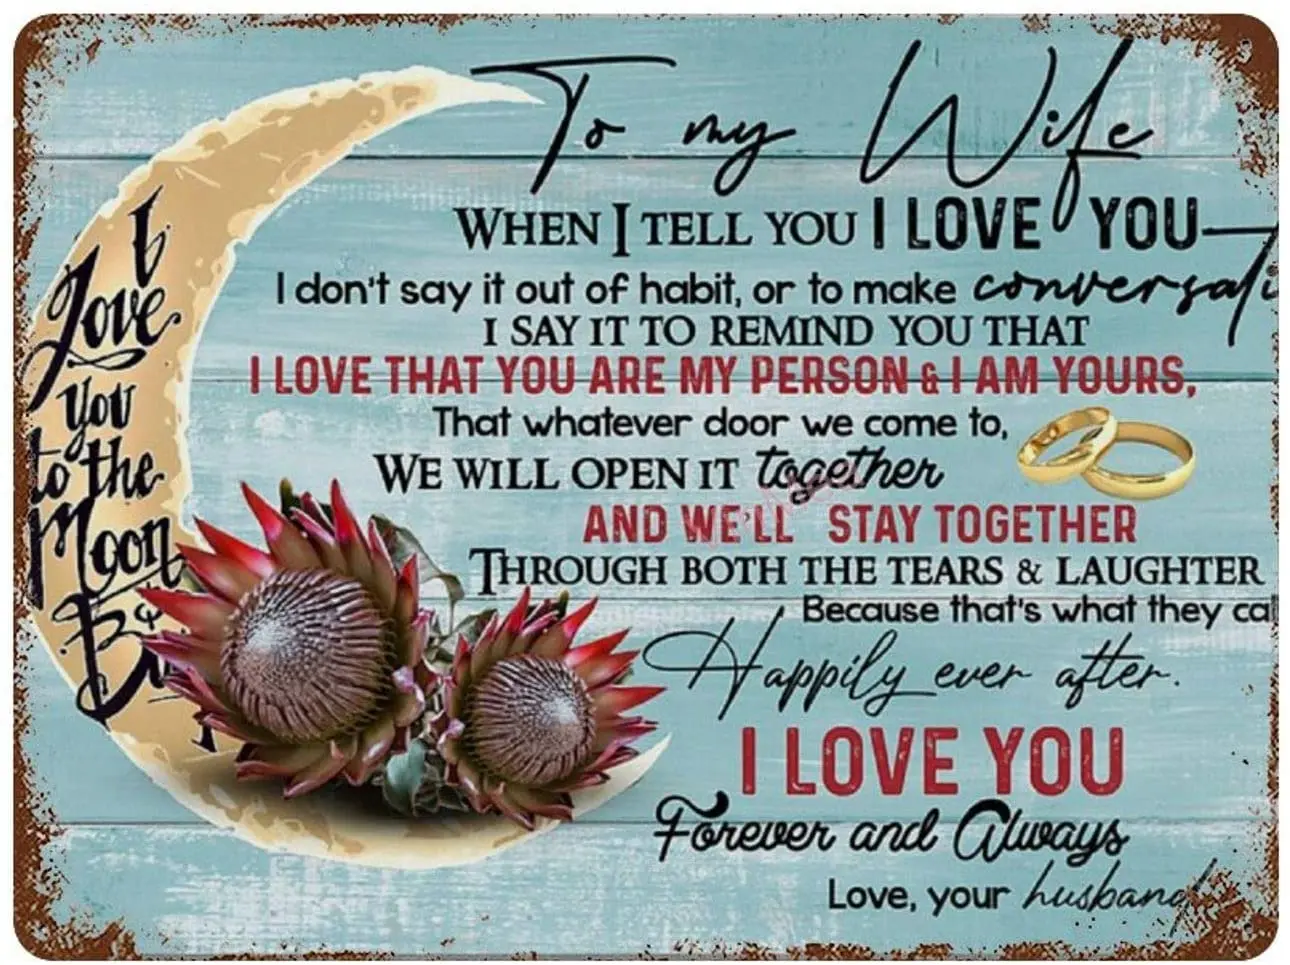 To my Wife
WHEN I TELL YOU I LOVE YOU
I don't say it out of habit, or to make conversati
I SAY IT TO REMIND YOU THAT
I LOVE THAT YOU ARE MY PERSON & I AM YOURS,
That whatever door we come to,
WE WILL OPEN IT together
AND WE'LL STAY TOGETHER
THROUGH BOTH THE TEARS & LAUGHTER
Because that's what they cal
Happily ever after.
I LOVE YOU
Forever and Always
Love, your husband
I
Love
You
to the
Moon
&